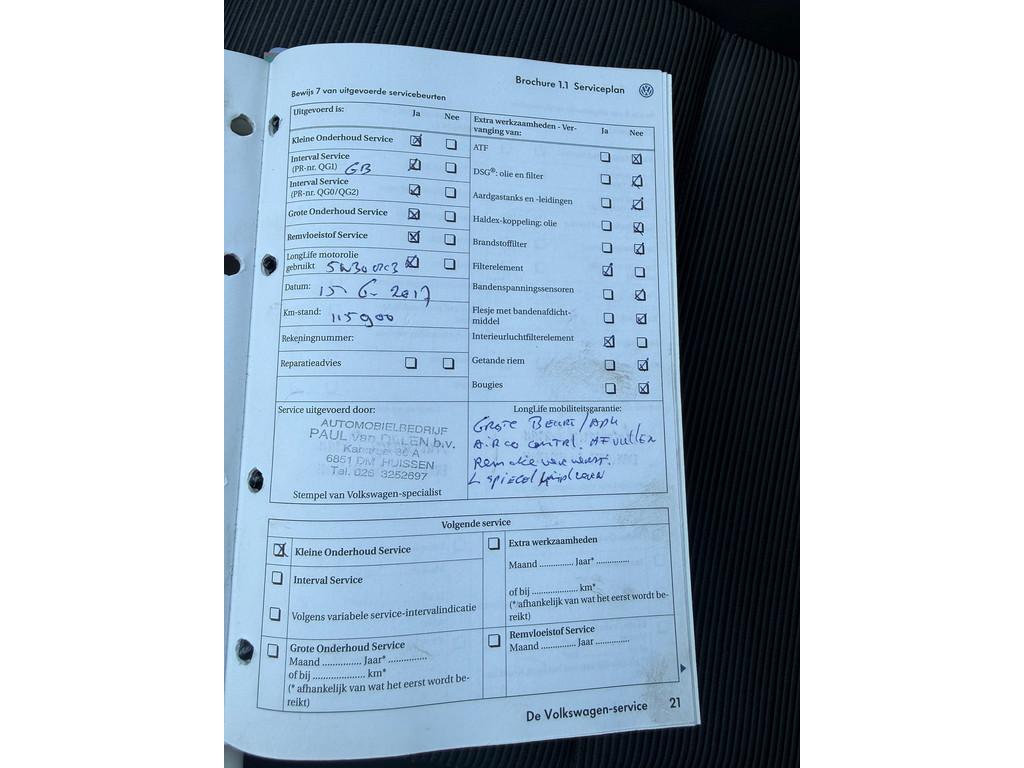 Brochure 1.1 Serviceplan
Bewijs 7 van uitgevoerde servicebeurten
Uitgevoerd is: Ja Nee
Kleine Onderhoud Service
Interval Service
(PR-nr. QG1) GB
Interval Service
(PR-nr. QG0/QG2)
Grote Onderhoud Service
Remvloeistof Service
LongLife motorolie
gebruikt 5W30
Datum: 15 6 2017
Km-stand: 115900
Rekeningnummer:
Reparatieadvies
Extra werkzaamheden - Ver-
vanging van: Ja Nee
ATF
DSG®: olie en filter
Aardgastanks en -leidingen
Haldex-koppeling: olie
Brandstoffilter
Filterelement
Bandenspanningssensoren
Flesje met bandenafdicht-
middel
Interieurluchtfilterelement
Getande riem
Bougies
Service uitgevoerd door:
AUTOMOBIELBEDRIJF
PAUL van DILLEN b.v.
6851 DM HUISSEN
Tel. 026 3252697
Stempel van Volkswagen-specialist
LongLife mobiliteitsgarantie:
GROTE BEURT/APK
AIRCO CONTRL.
L SPIEGEL
Volgende service
Kleine Onderhoud Service
Interval Service
Volgens variabele service-intervalindicatie
Grote Onderhoud Service
Maand ............... Jaar* ...............
of bij .................... km*
(* afhankelijk van wat het eerst wordt be-
reikt)
Extra werkzaamheden
Maand ............. Jaar* .............
of bij .................. km*
(* afhankelijk van wat het eerst wordt be-
reikt)
Remvloeistof Service
Maand ............. Jaar .............
De Volkswagen-service 21